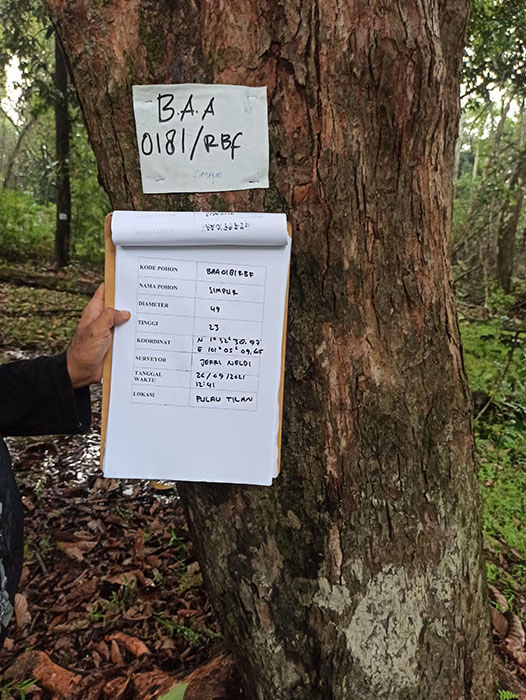 B.A.A
0181/RBF
SIMPUR
KODE POHON BAA0181RBF
NAMA POHON SIMPUR
DIAMETER 49
TINGGI 23
KOORDINAT N 1° 32' 38.97
E 101° 05' 09.65
SURVEYOR JEFRI NELDI
TANGGAL 26/09/2021
WAKTU 12:41
LOKASI PULAU TILAN